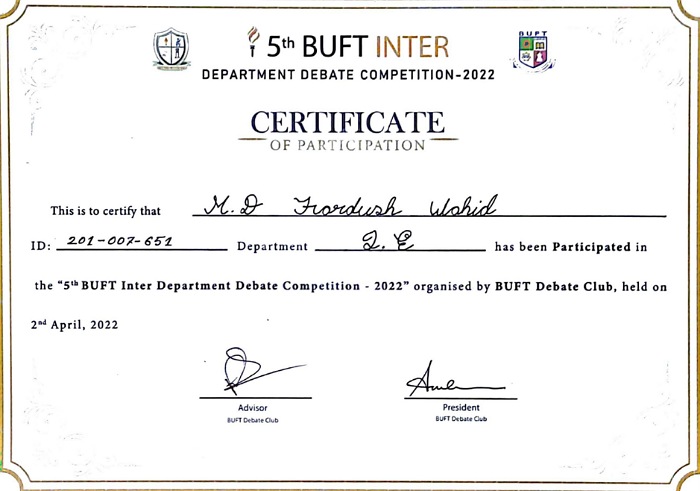 5th BUFT INTER
BUFT
DEPARTMENT DEBATE COMPETITION-2022
CERTIFICATE
OF PARTICIPATION
This is to certify that M.D Firordush Wahid
ID: 201-007-651 Department I.E has been Participated in
the “5th BUFT Inter Department Debate Competition - 2022” organised by BUFT Debate Club, held on
2nd April, 2022
Advisor
BUFT Debate Club
President
BUFT Debate Club